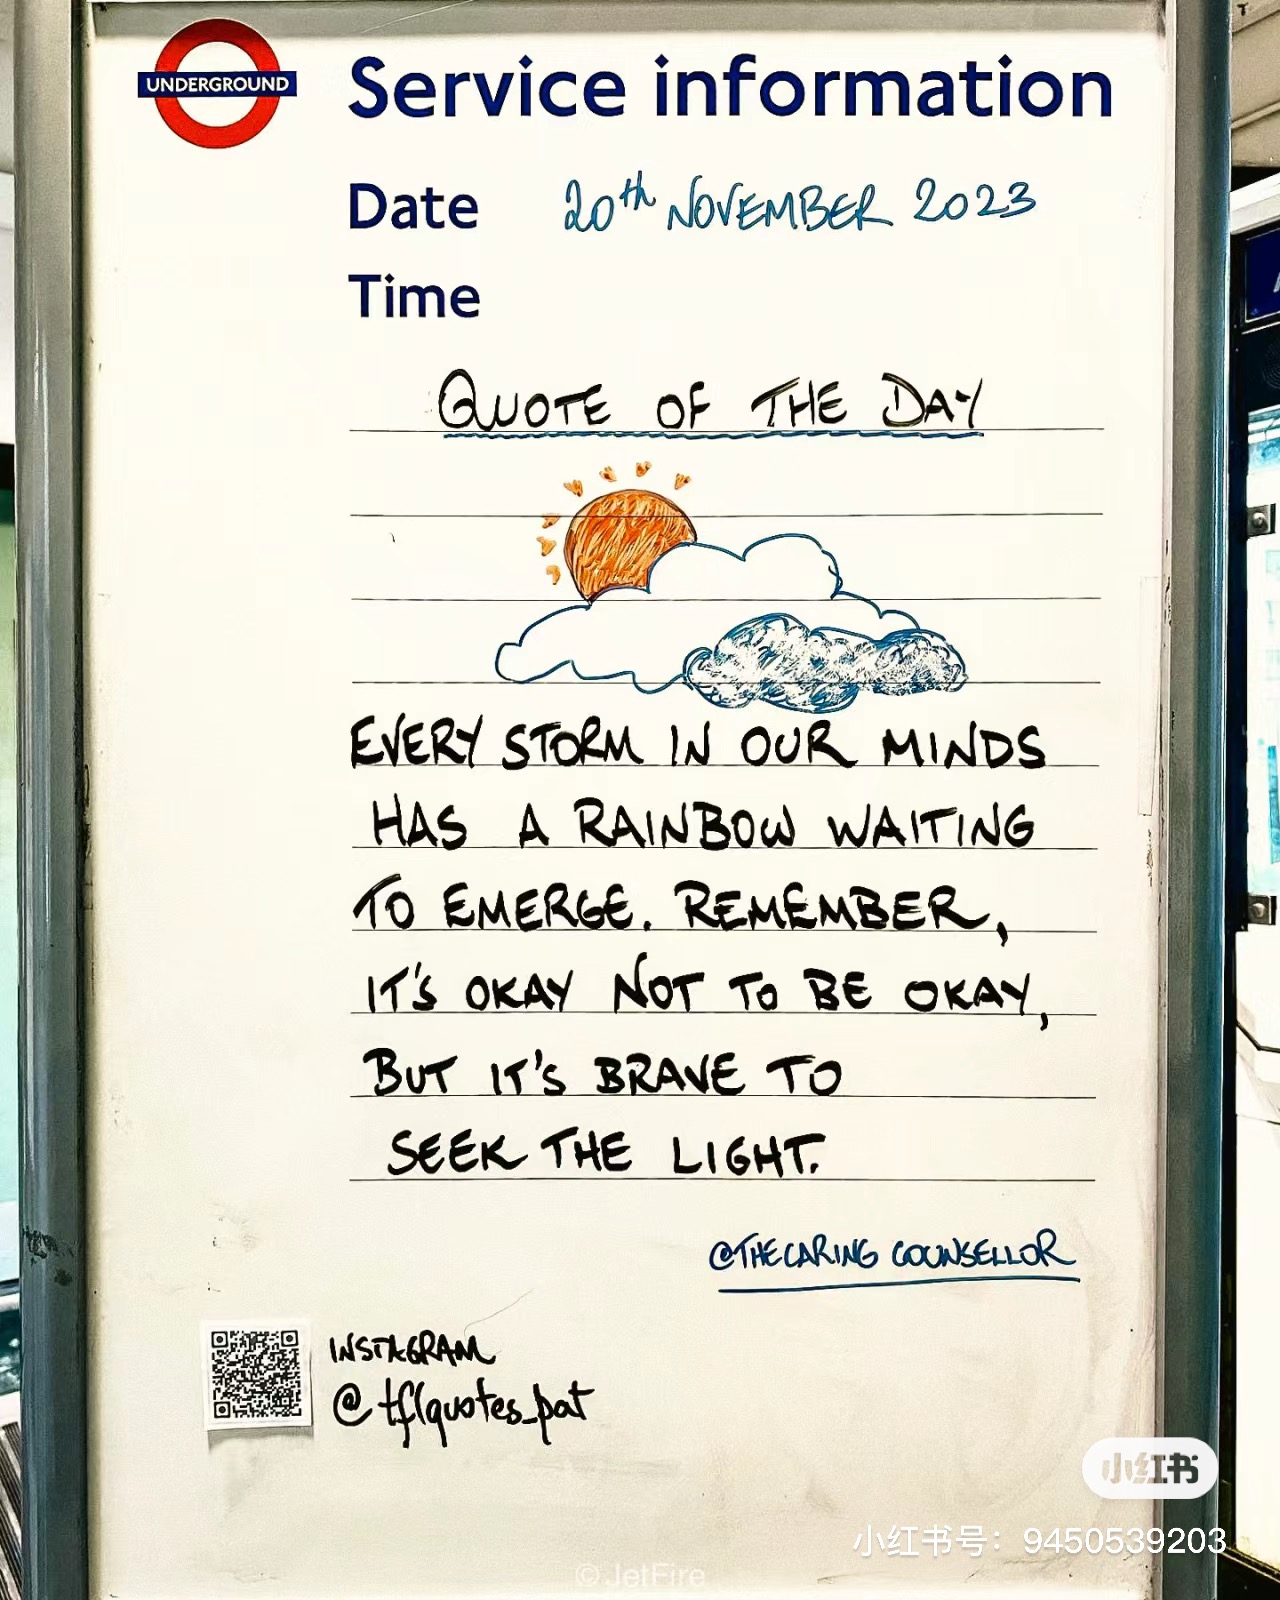 UNDERGROUND
Service information
Date 20th NOVEMBER 2023
Time
QUOTE OF THE DAY
EVERY STORM IN OUR MINDS
HAS A RAINBOW WAITING
TO EMERGE. REMEMBER,
IT'S OKAY NOT TO BE OKAY,
BUT IT'S BRAVE TO
SEEK THE LIGHT.
@THECARING COUNSELLOR
INSTAGRAM
@tflquotes_pat
小红书
小红书号：9450539203
© JetFire